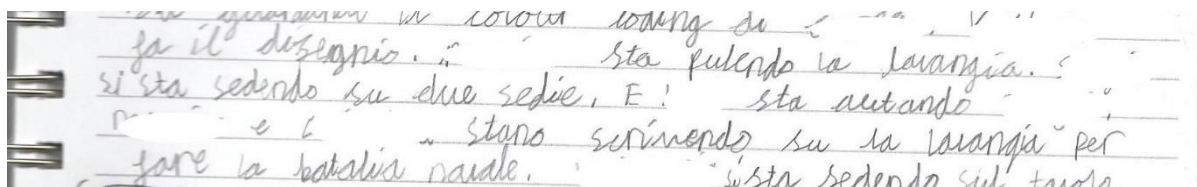 colour coding di
fa il disegnio. sta pulendo la lavangia.
si sta sedendo su due sedie. E sta autando
e stano scrivendo su la lavangia per
fare la batalia navale. si sta sedendo sul tavolo